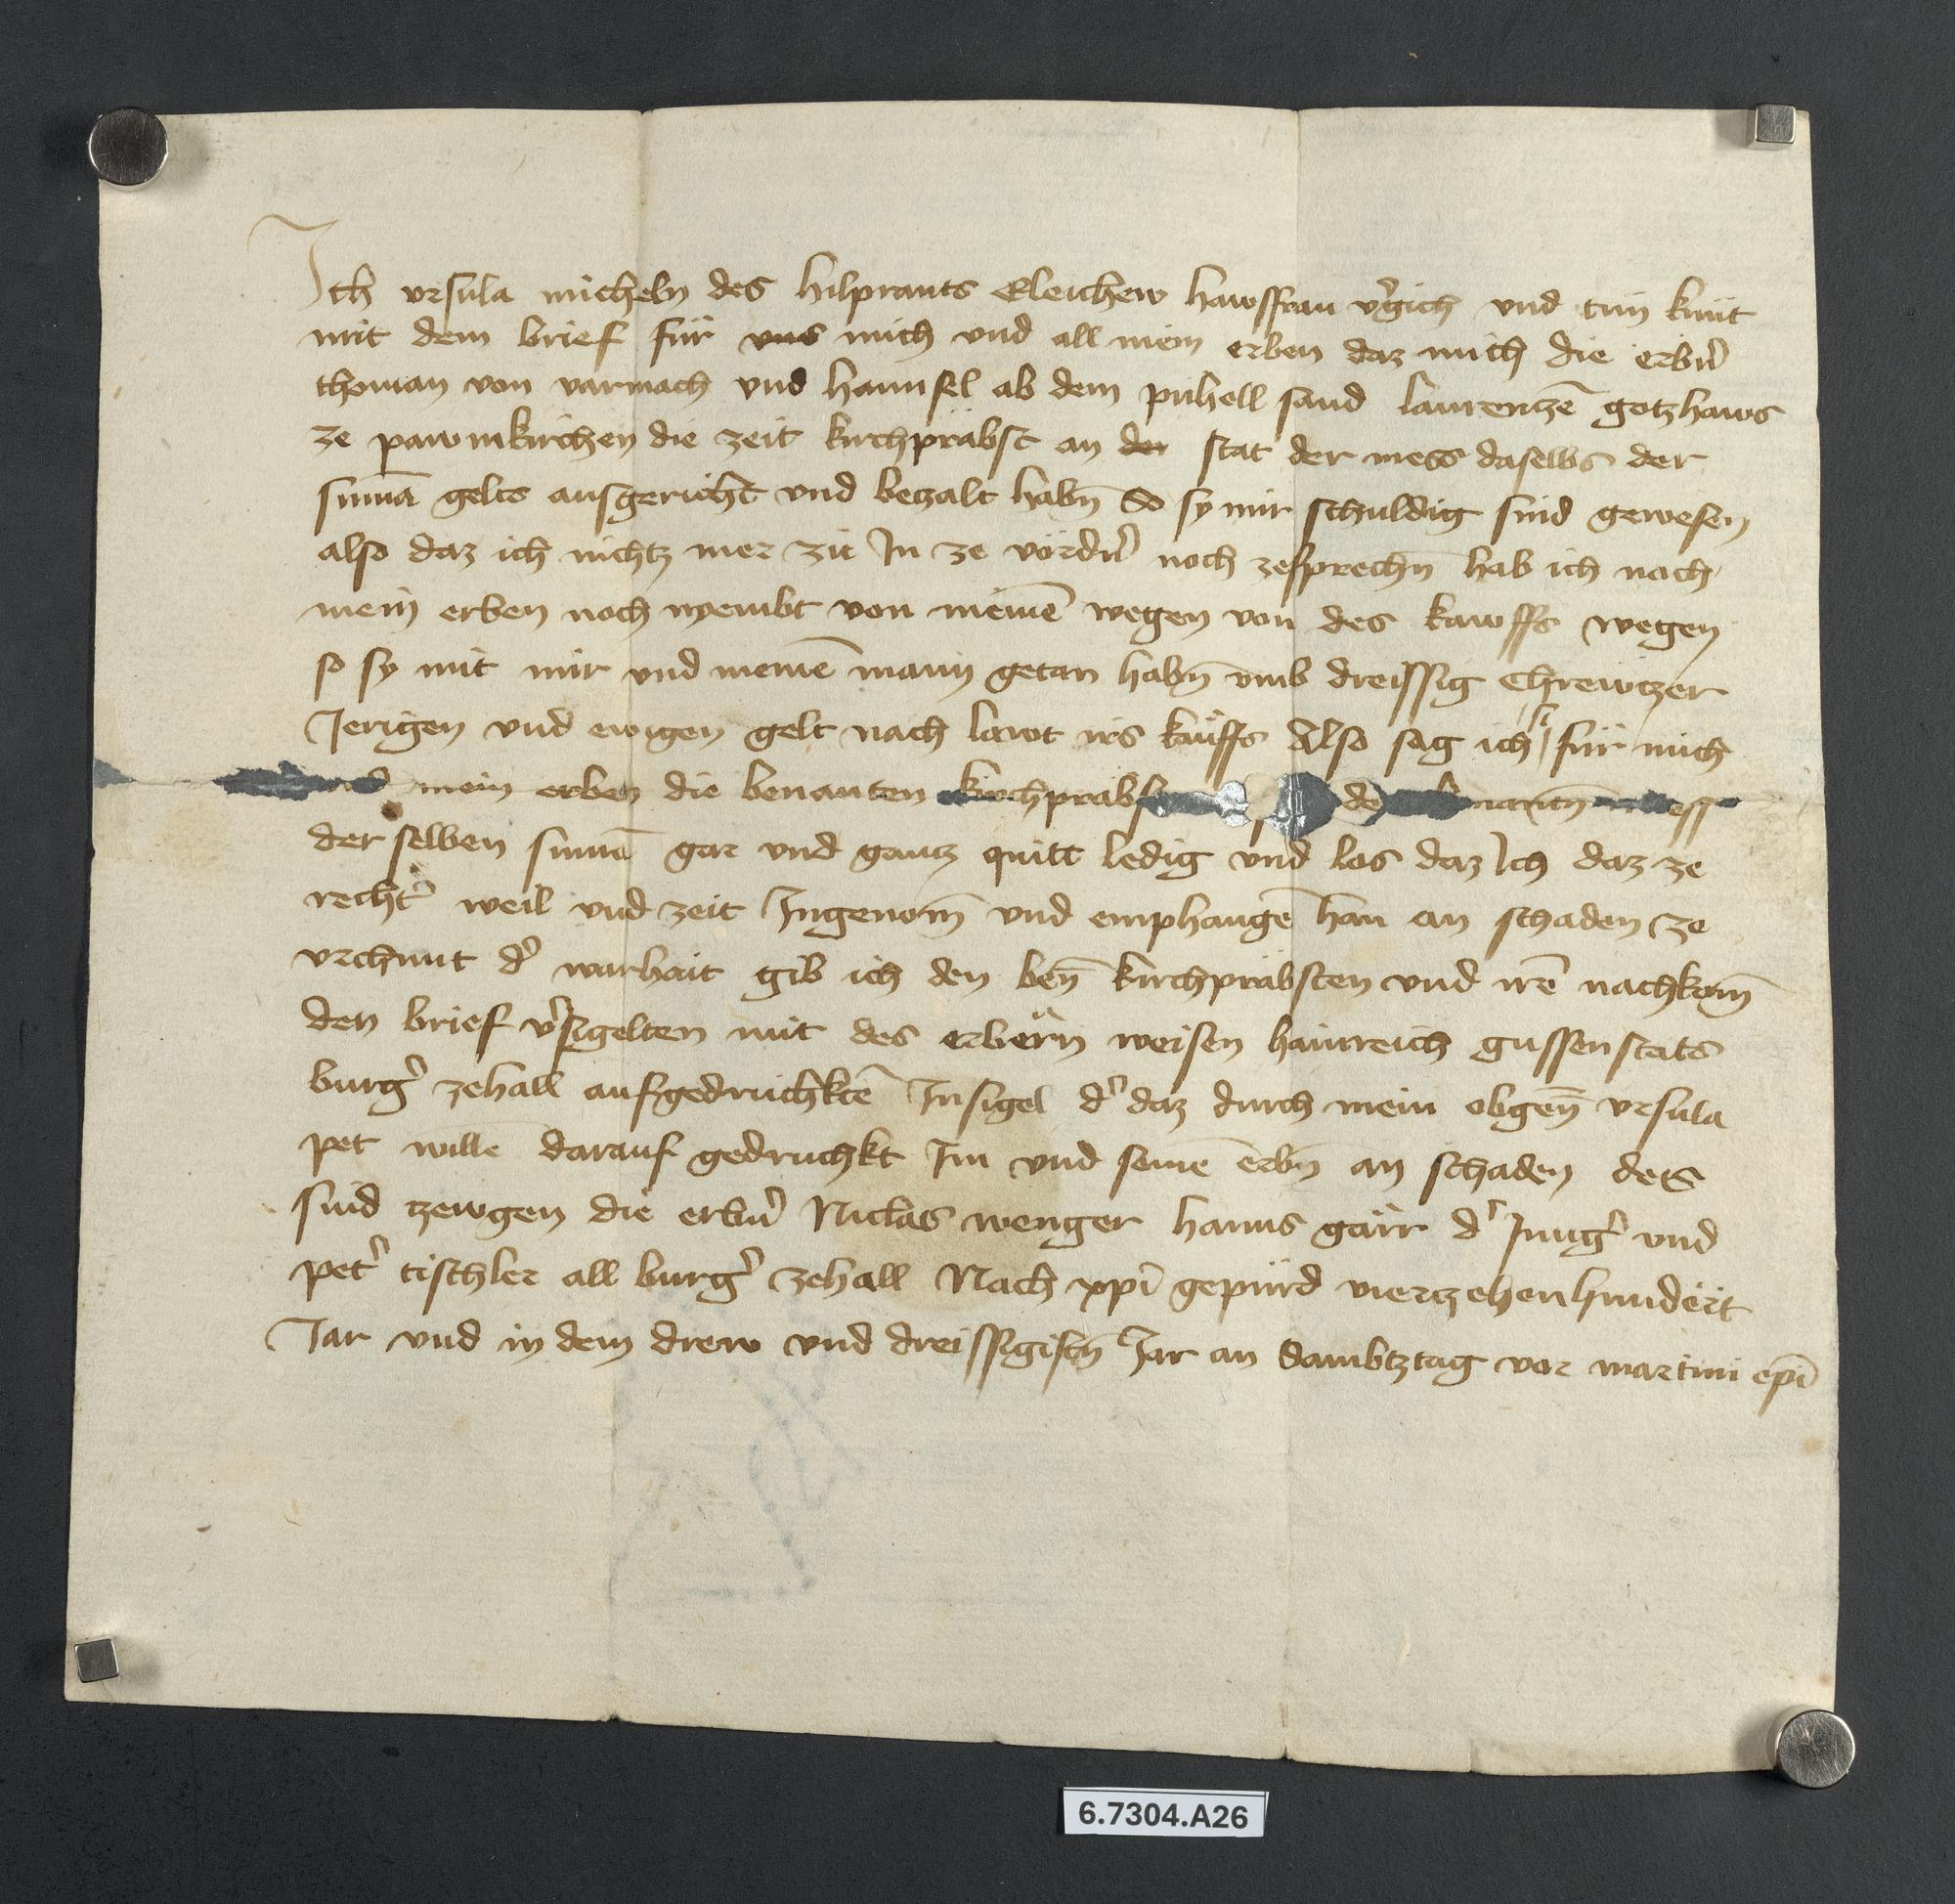 Ich vrsula micheln des hilprants Eleichew hawsfrau v̉gich vnd tun kunt
mit dem brief für vns mich vnd all mein erben daz mich die erbn̉
thoman von varmach vnd hannsel ab dem puhell sand laurenczē gotzhaws
ze pawmkirchen die zeit kirchpräbst an der stat der mess daselbs der
sum̄a gelts ausgericht vnd beczalt habn̄ So sy mir schuldig sind gewesen
also daz ich nichtz mer zu In ze vordn̉ noch zesprechn̄ hab ich noch
mein erben noch nyembt von meinē wegen von des kawffs wegen
so sy mit mir vnd meinē mann getan habn̄ vmb dreissig Chrewczer
Jerigen vnd ewigen gelt nach lawt irs kauffs Also sag ich si für mich
vnd mein erben die benanten kirchpräbst
der selben sum̄a gar vnd gancz quitt ledig vnd los daz Ich daz ze
recht̉ weil vnd zeit Ingenom̄ vnd emphangē han an schaden ze
vrchunt d̉ warhait gib ich den ben̄ kirchpräbsten vnd irē nachkom̄
den brief v̉sigelten mit des erbern weisen hainreich gussenstats
burg̉ zehall aufgedruchktē Insigel d̉ daz durch mein obgen̄ vrsula
pet willē darauf gedruchkt Im vnd seinē erbn̄ an schaden des
sind zewgen die erbn̉ Niclas wenger hanns gärr d̉ Jung̉ vnd
pet̉ tischler all burg̉ zehall Nach xp̄i gepürd vierczehenhundert
Jar vnd in dem drew vnd dreissigistn̄ Jar an Sambtztag vor martini ep̄i
6.7304.A26